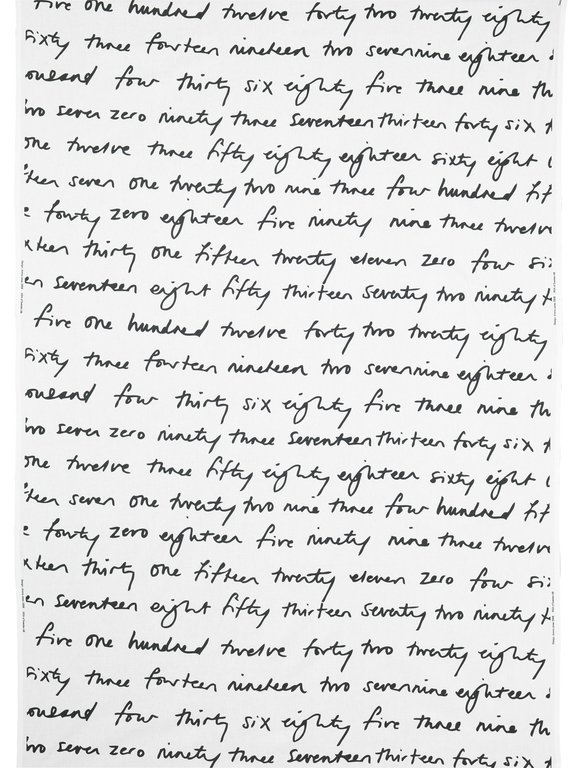 five one hundred twelve forty two twenty eighty
sixty three fourteen nineteen two seven nine eighteen
ousand four thirty six eighty five three nine th
two seven zero ninety three seventeen thirteen forty six
one twelve three fifty eighty eighteen sixty eight
teen seven one twenty two nine three four hundred fif
fourty zero eighteen five ninety nine three twelve
xteen thirty one fifteen twenty eleven zero four si
en seventeen eight fifty thirteen seventy two ninety t
five one hundred twelve forty two twenty eighty
sixty three fourteen nineteen two seven nine eighteen
ousand four thirty six eighty five three nine th
two seven zero ninety three seventeen thirteen forty six
one twelve three fifty eighty eighteen sixty eight
teen seven one twenty two nine three four hundred fif
fourty zero eighteen five ninety nine three twelve
xteen thirty one fifteen twenty eleven zero four si
en seventeen eight fifty thirteen seventy two ninety t
five one hundred twelve forty two twenty eighty
sixty three fourteen nineteen two seven nine eighteen
ousand four thirty six eighty five three nine th
two seven zero ninety three seventeen thirteen forty six